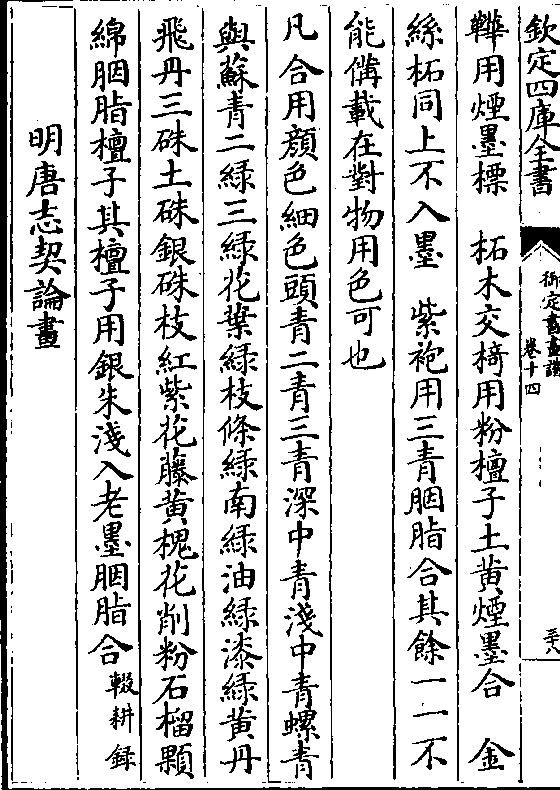 欽定四庫全書
御定書畫譜
卷十四
三十八
鞾用煙墨標　柘木交椅用粉檀子土黄煙墨合　金
絲柘同上不入墨　紫袍用三青胭脂合其餘一一不
能備載在對物用色可也
凡合用顔色細色頭青二青三青深中青淺中青螺青
與蘇青二緑三緑花葉緑枝條緑南緑油緑漆緑黄丹
飛丹三硃土硃銀硃枝紅紫花藤黄槐花削粉石榴顆
綿胭脂檀子其檀子用銀朱淺入老墨胭脂合輟耕録
明唐志契論畫